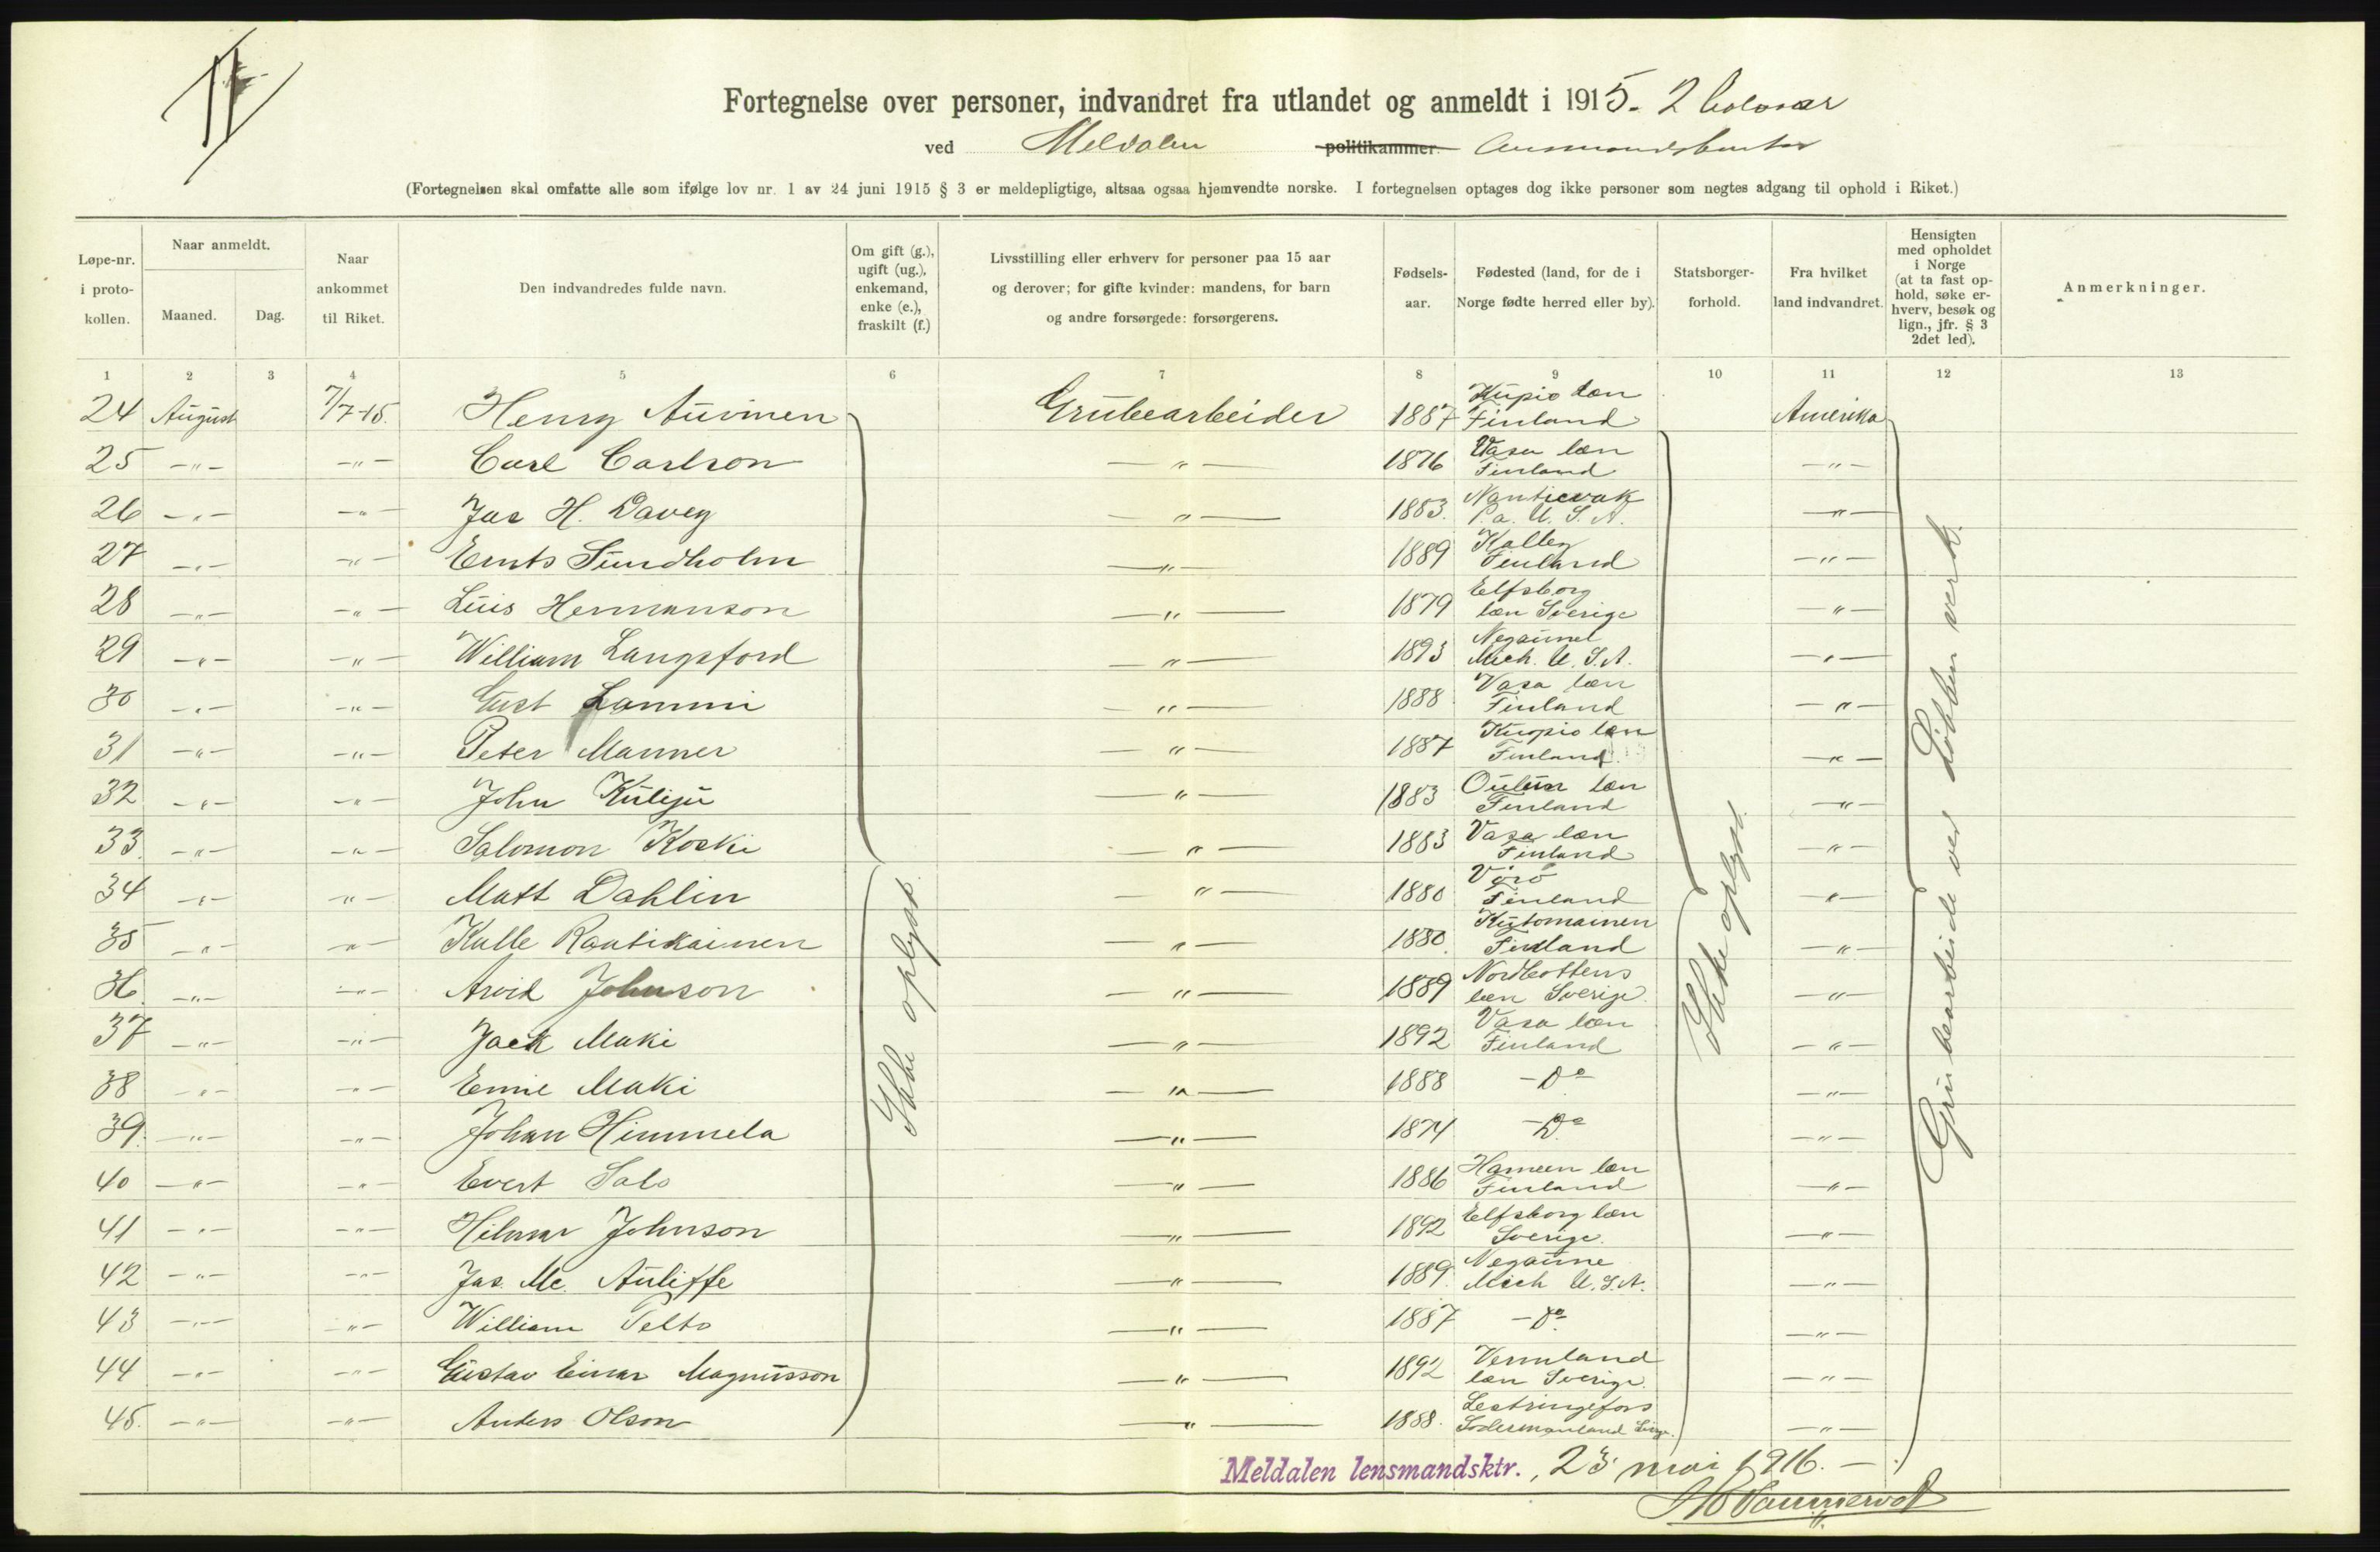 Fortegnelse over personer, indvandret fra utlandet og anmeldt i 1915. 2 halvaar
ved Meldalen politikammer lensmandskontor
(Fortegnelsen skal omfatte alle som ifølge lov nr. 1 av 24 juni 1915 § 3 er meldepligtige, altsaa ogsaa hjemvendte norske. I fortegnelsen optages dog ikke personer som negtes adgang til ophold i Riket.)
Løpe-nr. i proto- kollen.
Naar anmeldt.
Maaned. Dag.
Naar ankommet til Riket.
Den indvandredes fulde navn.
Om gift (g.), ugift (ug.), enkemand, enke (e.), fraskilt (f.)
Livsstilling eller erhverv for personer paa 15 aar og derover; for gifte kvinder: mandens, for barn og andre forsørgede: forsørgerens.
Fødsels- aar.
Fødested (land, for de i Norge fødte herred eller by).
Statsborger- forhold.
Fra hvilket land indvandret.
Hensigten med opholdet i Norge (at ta fast op- hold, søke er- hverv, besøk og lign., jfr. § 3 2det led).
Anmerkninger.
1 2 3 4 5 6 7 8 9 10 11 12 13
24 August 7/7-15. Henry Auvinen Grubearbeider 1887 Kupio læn Finland Amerika
25 -"- -"- Carl Carlson -"- 1876 Vasa læn Finland -"-
26 -"- -"- Jas H. Davey -"- 1883. P.a. U.S.A. -"-
27 -"- -"- Ernts Sundholm -"- 1889 Kalley Finland -"-
28 -"- -"- Luis Hermanson -"- 1879 Elfsborg læn Sverige -"-
29 -"- -"- William Langsford -"- 1893 Negaunel Mich. U.S.A. -"-
30 -"- -"- Gust Lammi -"- 1888 Vasa læn Finland -"-
31 -"- -"- Peter Manner -"- 1887 Kuopio læn Finland. -"-
32 -"- -"- John Kuliju -"- 1883 Oulun læn Finland -"-
33. -"- -"- Salomon Koski -"- 1883 Vasa læn Finland -"-
34 -"- -"- Matt Dahlin -"- 1880 Vörö Finland -"-
35 -"- -"- Kalle Rautikainen -"- 1880. Finland -"-
36. -"- -"- Arvid Johnson -"- 1889 Nordbottens læn Sverige. -"-
37 -"- -"- Jack Maki -"- 1892 Vasa læn Finland -"-
38 -"- -"- Emil Maki -"- 1888 - Do -"-
39. -"- -"- Johan Himmela -"- 1874 - Do -"-
40 -"- -"- Evert Salo -"- 1886 Hameen læn Finland -"-
41 -"- -"- Hilmar Johnson -"- 1892 Elfsborg læn Sverige. -"-
42 -"- -"- Jas. Mc. Auliffe -"- 1889. Negaune Mich U.S.A. -"-
43 -"- -"- William Pelto -"- 1887 - Do -"-
44 -"- -"- Gustav Einar Magnusson -"- 1892 Vermland læn Sverige. -"-
45. -"- -"- Anders Olson -"- 1888. Södermanland -"-
Ikke oplyst.
Ikke oplyst.
Grubearbeide ved Løkken verk.
Meldalen lensmandsktr., 23 mai 1916. —